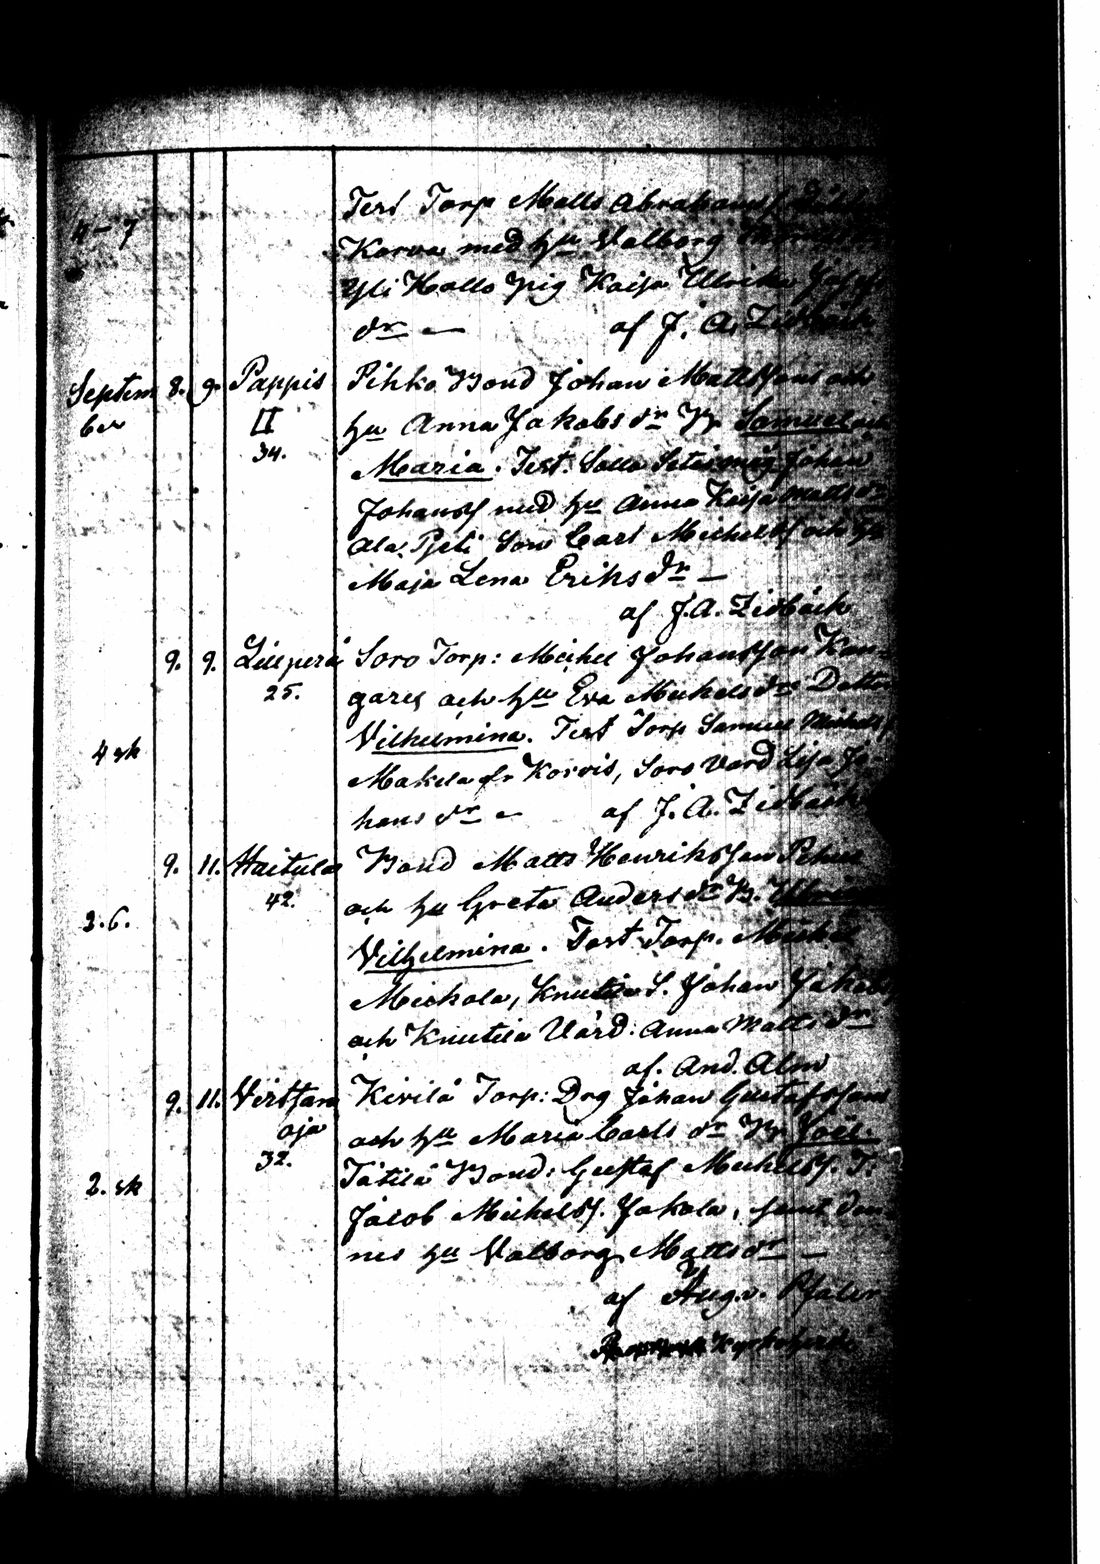 4-7
Test Torp Matts Abrahamss
Korva med hu Valborg
Yli Kallo pig Kaisa Ulrika
dr — af J. A. Zidbäck
Septem 8. 9. Pappis Pihko Bond Johan Mattsson och
ber II hu Anna Jakobs dr B. Samuel och
34. Maria. Test. Salla Johan
Johanss med hu Anna Kaisa Matts dr
Ala Son Carl Michelss och hu
Maja Lena Eriks dr —
af J.A. Zidbäck
9. 9. Lillperä Soro Torp: Michel Johansson Kan-
25. gares och hu Eva Michels dr Dotter
Vilhelmina. Test Torp Samuel Michelss
4 sk Makela fr Korvis, Soro Värd Lisa Jo-
hans dr — af J. A. Zidbäck
9. 11. Haitula Bond Matts Henriksson
42. och hu Greta Anders dr B.
3.6. Vilhelmina. Test Torp. Michel
Mickola, Knutila S. Johan Jakobss
och Knutila Värd: Anna Matts dr
af. And. Alm
9. 11. Virttan Kivilä Torp: Drg Johan Gustafsson
oja och hu Maria Carls dr B. Joel.
32. Tätilä Bond: Gustaf Michelss. T:
2. sk Jacob Michelss. Jakola, samt den-
nes hu Valborg Matts dr —
af Aug. v. Pfaler